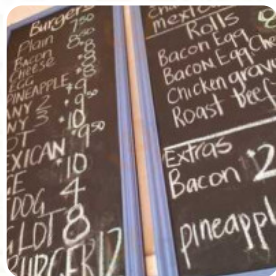 Burgers
Plain 7.50
Bacon 8.50
Cheese 8
EGG 8
PINEAPPLE 8
ANY 2 9
ANY 3 10
LOT 9.50
EXICAN
10
4
DOG
LOT 8
BURGER 12
mexic
Rolls
Bacon Egg
Bacon Egg Ch
Chicken grav
Roast Beef
Extras
Bacon 2
pineappl